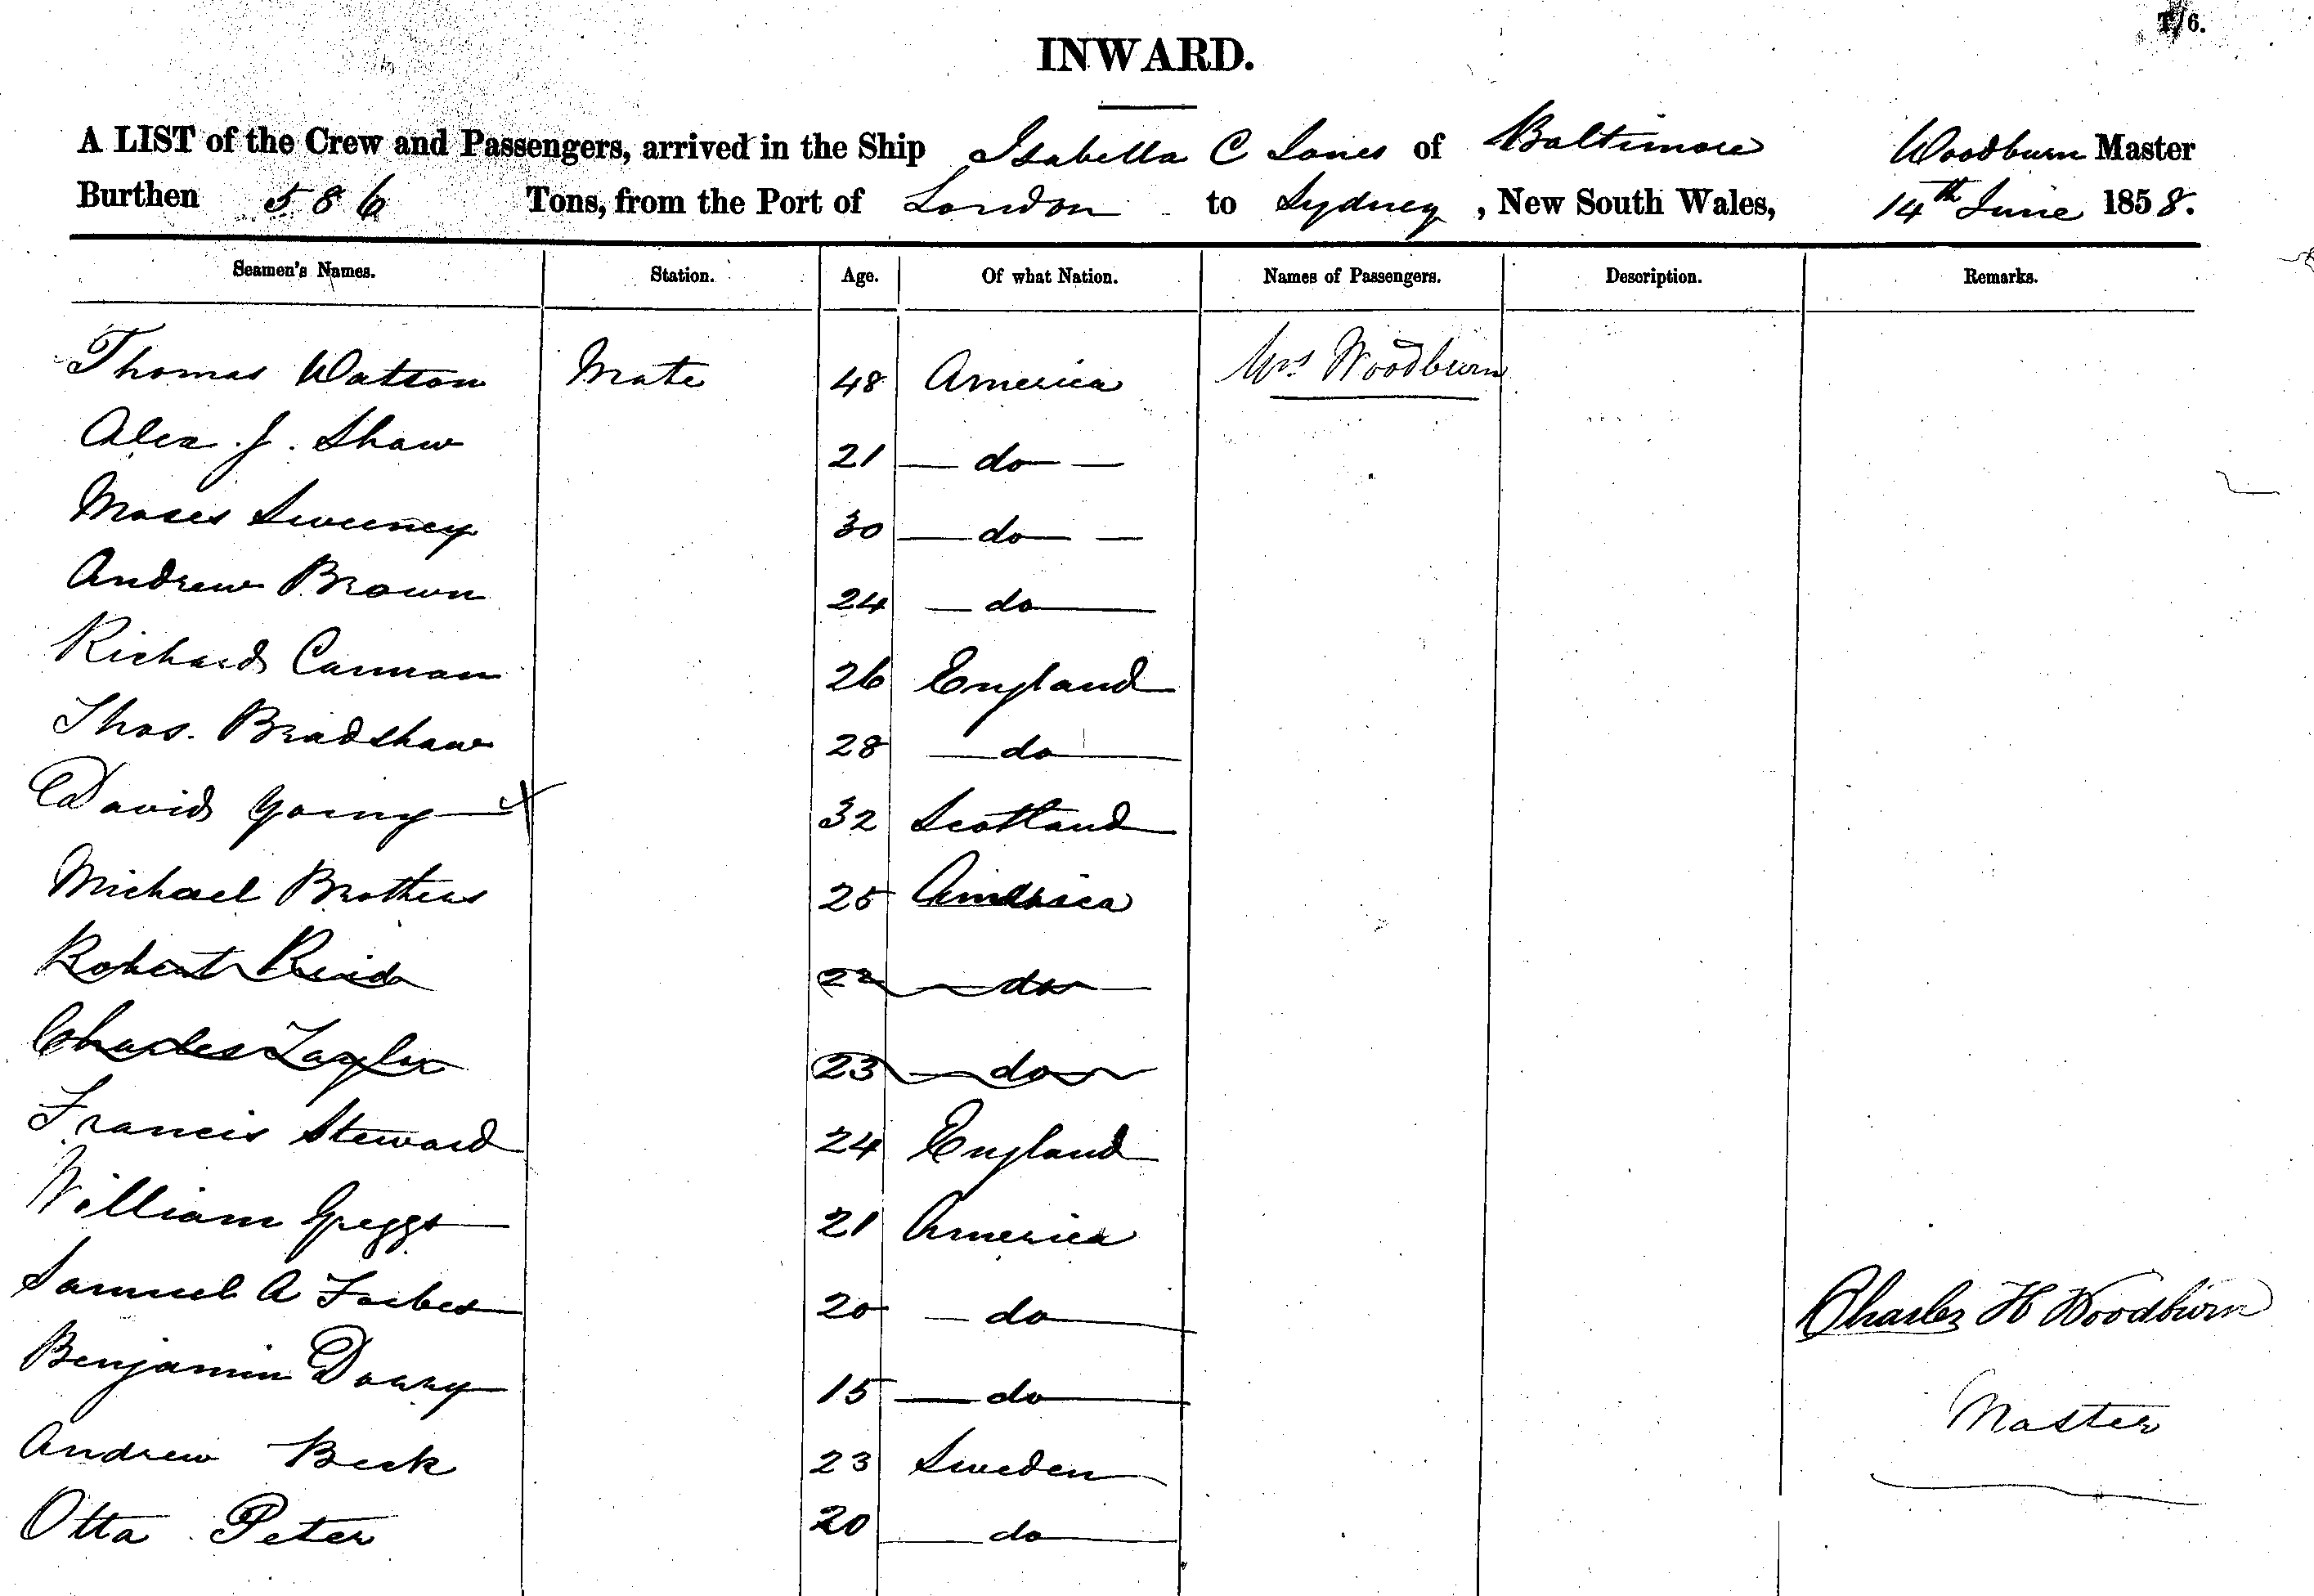 T/6.
INWARD.
A LIST of the Crew and Passengers, arrived in the Ship Isabella C Jones of Baltimore Woodburn Master
Burthen 586 Tons, from the Port of London to Sydney, New South Wales, 14th June 1858.
Seamen's Names. Station. Age. Of what Nation. Names of Passengers. Description. Remarks.
Thomas Watson Mate 48 America Mrs. Woodburn
Alex. J. Shaw 21 — do —
Moses Sweeney 30 — do —
Andrew Brown 24 — do —
Richard Carman 26 England
Thos. Bradshaw 28 — do —
David Young X 32 Scotland
Michael Brothers 25 America
Robert Reid 22 — do —
Charles Taylor 23 — do —
Francis Steward 24 England
William Greggs 21 America
Samuel A Forbes 20 — do —
Charles H Woodburn
Benjamin 15 — do —
Master
Andrew Beck 23 Sweden
Otta Peter 20 — do —